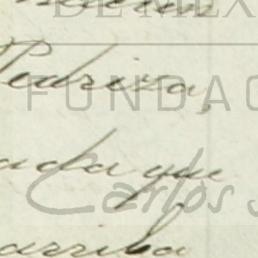 DE MÉX
Pedriza,
FUNDAC
ada que
Carlos S
arriba